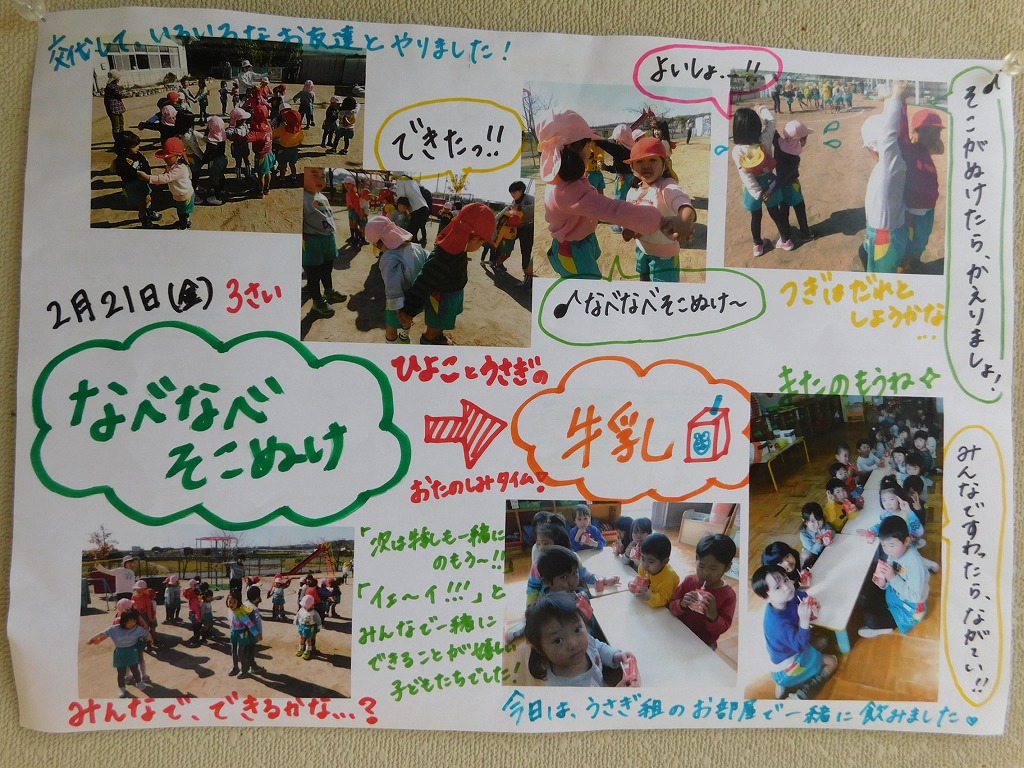 交代して、いろいろなお友達とやりました！
できたっ!!
よいしょ…!!
♪そこがぬけたら、かえりましょ！
2月21日(金) 3さい
♪なべなべそこぬけ〜
つぎはだれと
しょうかな…
なべなべ
そこぬけ
ひよことうさぎの
おたのしみタイム！
牛乳
またのもうね☆
みんなですわったら、ながーい!!
「次は牛乳も一緒に
のもう〜!!
「イェ〜イ!!!」と
みんなで一緒に
できることが嬉しい
子どもたちでした！
みんなで、できるかな…？
今日は、うさぎ組のお部屋で一緒に飲みました♥